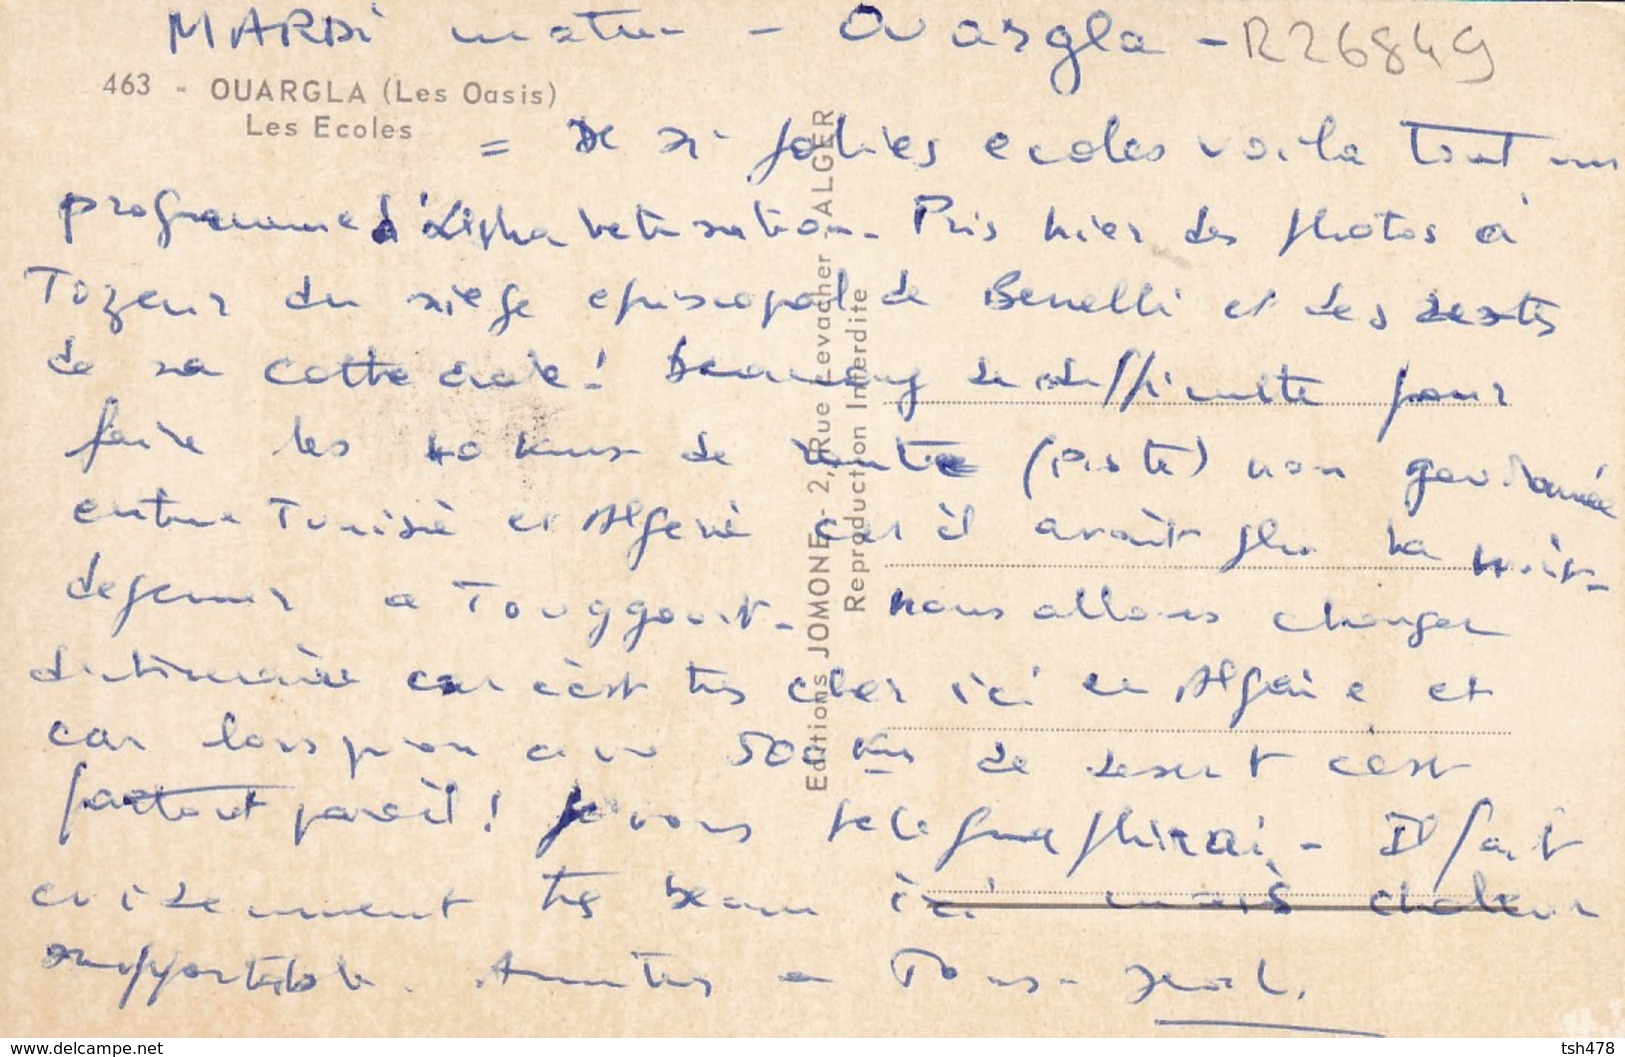 MARDI matin - Ouargla - R26849
463 - OUARGLA (Les Oasis)
Les Ecoles
= De si jolies ecoles voila tout un
programme d'alphabetisation. Pris hier des photos à
Tozeur du siege episcopal de Benelli et des restes
de sa cathedrale! Beaucoup de difficulte pour
faire les 40 kms de route (piste) non goudronnée
entre Tunisie et Algerie car il avait plu la nuit-
dejeuner a Touggourt - nous allons changer
d'itineraire car c'est tres cher ici en Algerie et
car lorsqu'on a vu 500 Kms de desert c'est
partout pareil! Je vous telegraphirai - Il fait
evidemment tres beau ici mais chaleur
supportable. Amities a Tous -
Editions JOMONE - 2, Rue Levacher - ALGER
Reproduction Interdite
www.delcampe.net
tsh478